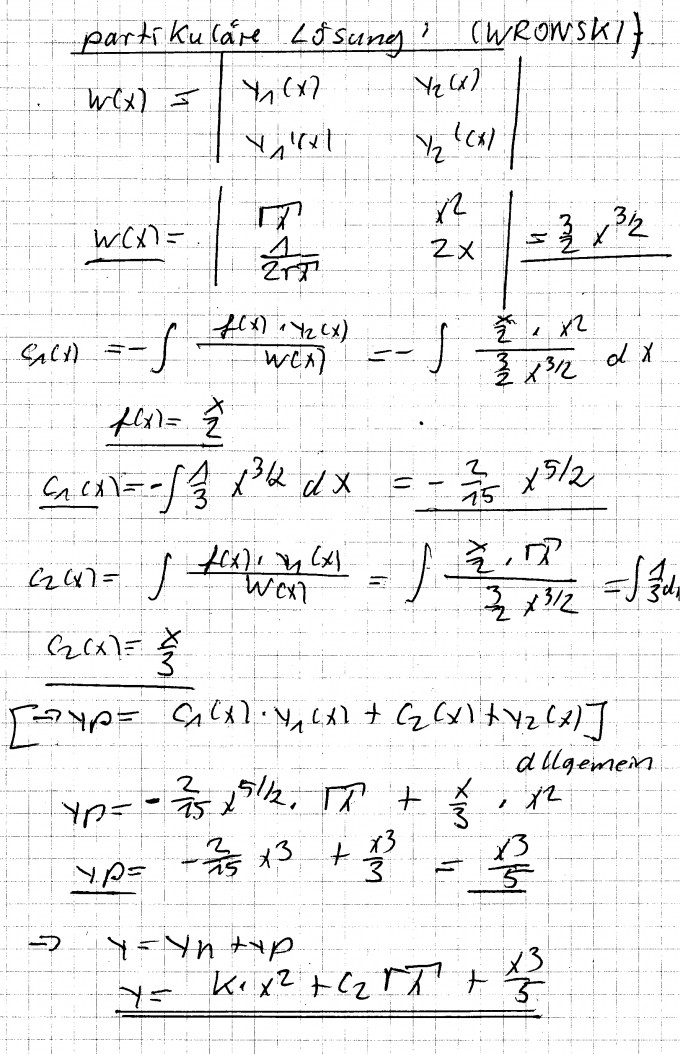 partikuläre Lösung: (WRONSKI)
W(x) = | y1(x) y2(x) |
| y1'(x) y2'(x) |
W(x) = | √x x² | = 3/2 x^3/2
| 1/(2√x) 2x |
c1(x) = - ∫ f(x)·y2(x) / W(x) = - ∫ (x/2 · x²) / (3/2 x^3/2) dx
f(x) = x/2
c1(x) = - ∫ 1/3 x^3/2 dx = - 2/15 x^5/2
c2(x) = ∫ f(x)·y1(x) / W(x) = ∫ (x/2 · √x) / (3/2 x^3/2) = ∫ 1/3 dx
c2(x) = x/3
[→ yp = c1(x)·y1(x) + c2(x) + y2(x)]
allgemein
yp = - 2/15 x^5/2 · √x + x/3 · x²
yp = - 2/15 x³ + x³/3 = x³/5
⇒ y = yh + yp
y = K·x² + c2 √x + x³/5